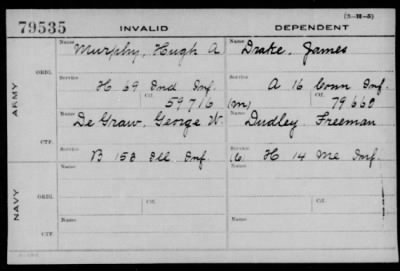 79535 INVALID DEPENDENT (3-II-5)
Name Murphy, Hugh A. Name Drake, James
ORIG.
Service H 69 Ind Inf. Service A 16 Conn Inf.
Ctf. 59716 (M) Ctf. 79668
ARMY
Name De Graw, George W Name Dudley, Freeman
CTF.
Service B 153 Ill Inf. Service H 14 Me Inf.
Name Name
ORIG.
Service Ctf. Service Ctf.
NAVY
Name Name
CTF.